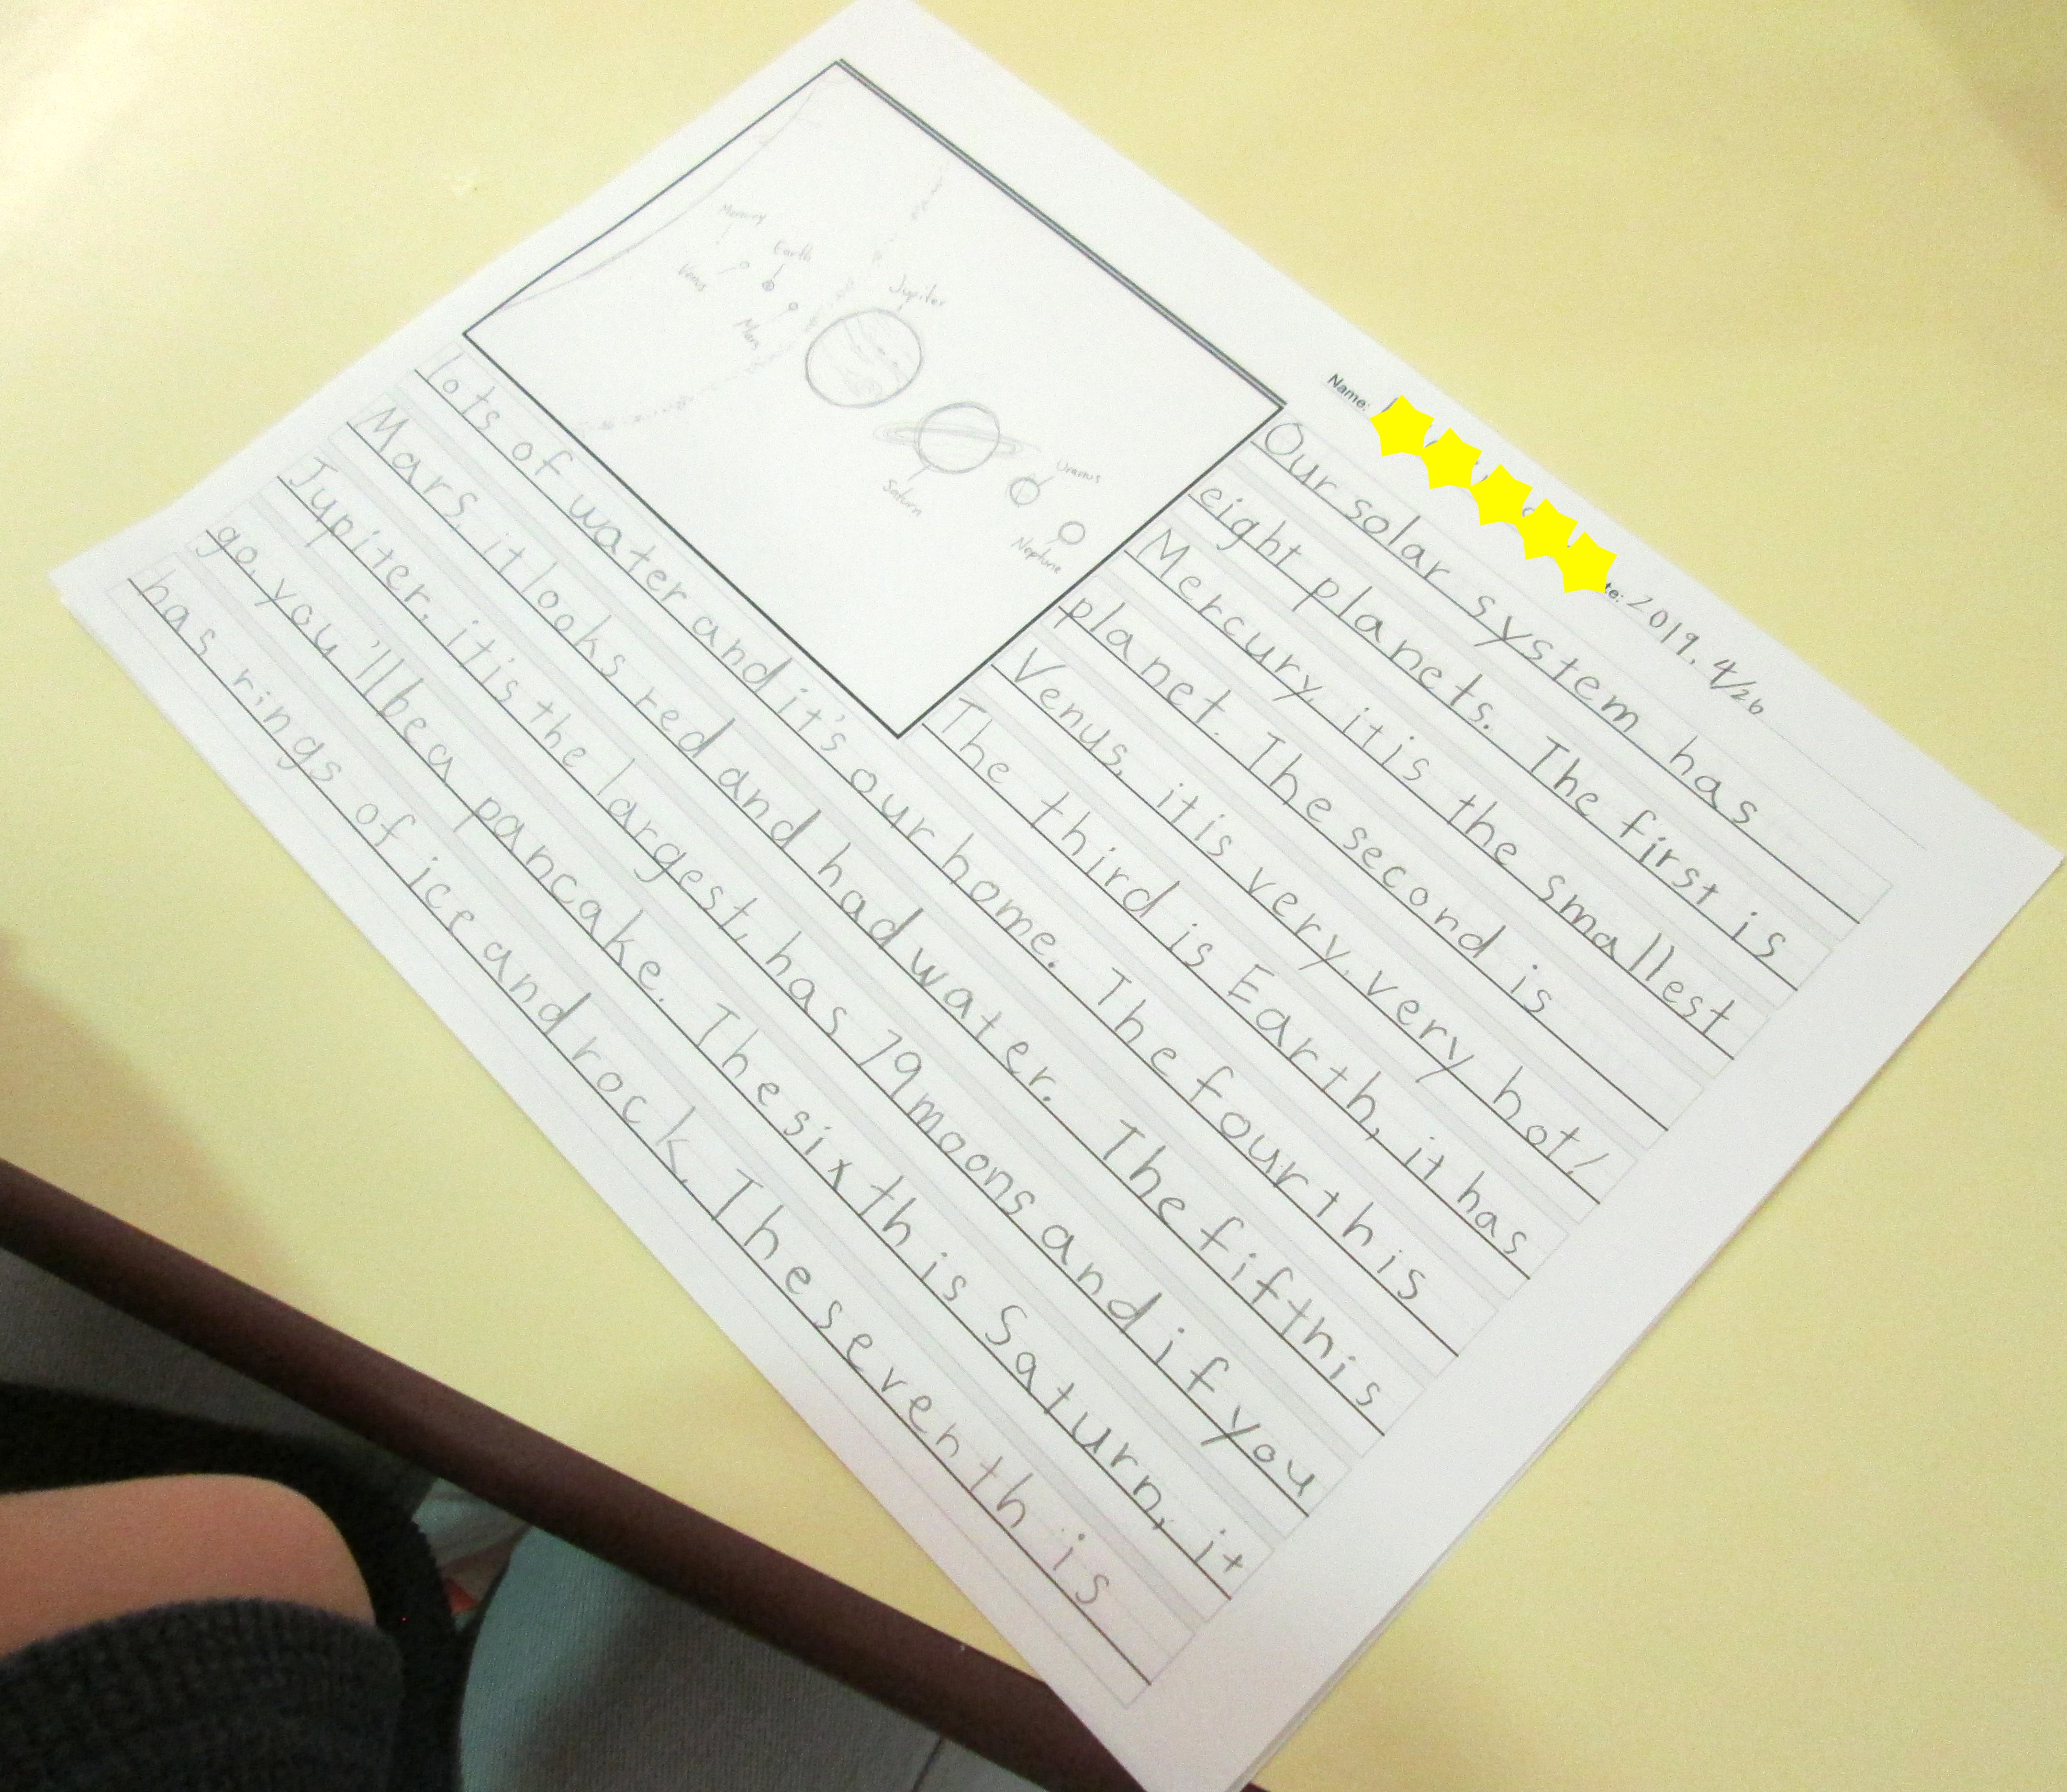 Name:
te: 2019. 4/26
Mercury
Venus
Earth
Mars
Jupiter
Saturn
Uranus
Neptune
Our solar system has
eight planets. The first is
Mercury, it is the smallest
planet. The second is
Venus, it is very, very hot!
The third is Earth, it has
lots of water and it's our home. The fourth is
Mars, it looks red and had water. The fifth is
Jupiter, it is the largest, has 79 moons and if you
go, you'll be a pancake. The sixth is Saturn, it
has rings of ice and rock. The seventh is